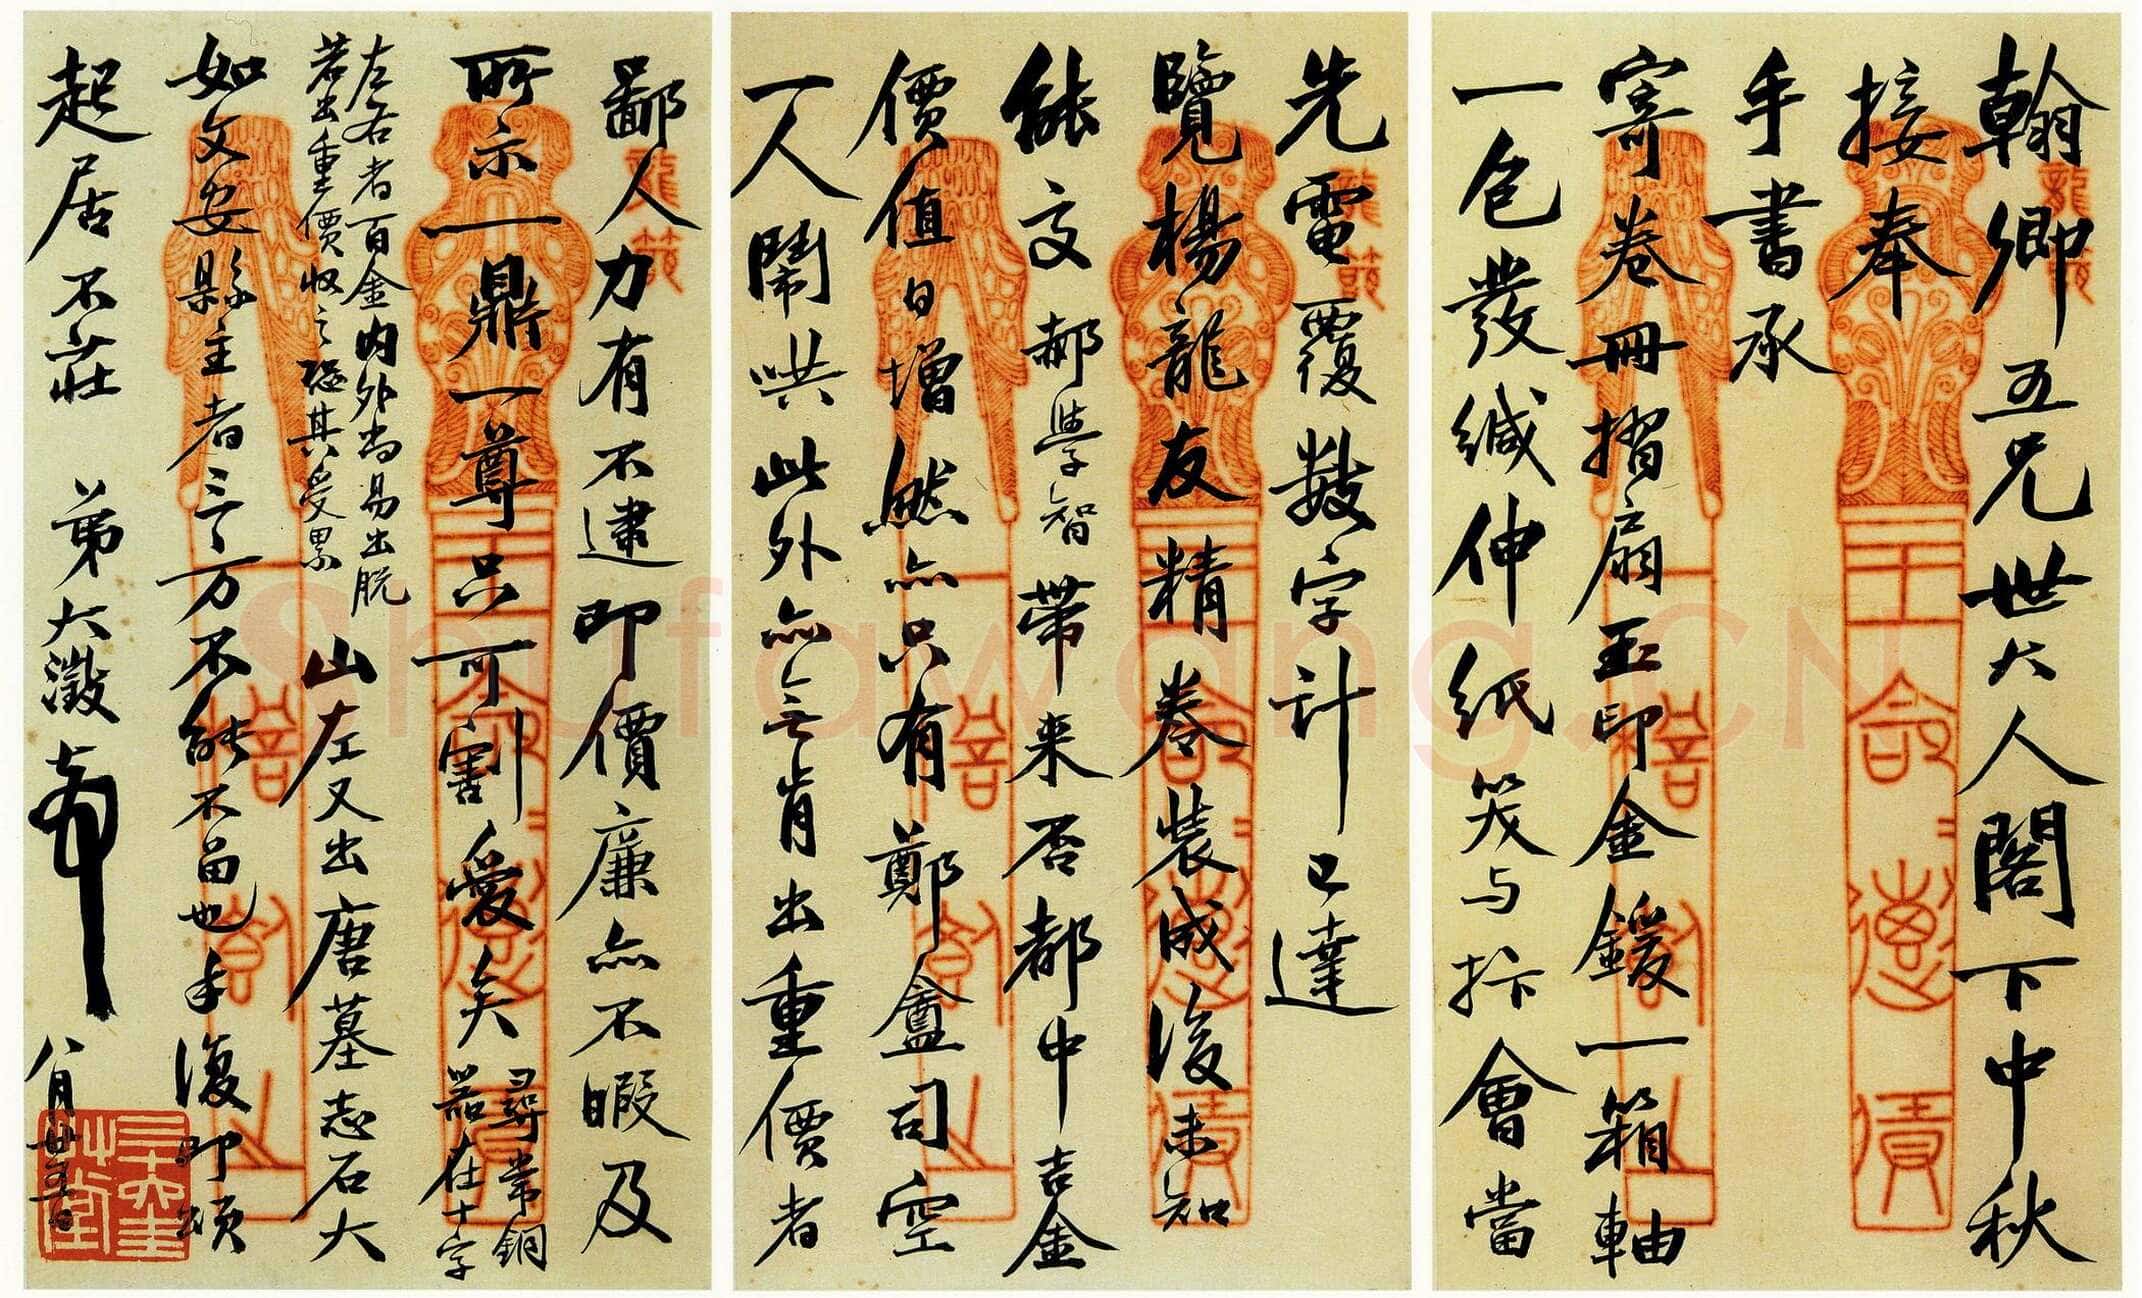 翰卿五兄世大人閣下中秋
接奉
手書承
寄卷冊摺扇玉印金鍰一箱軸
一包發緘伸紙笑与抃會當
先電覆數字計已達
覽楊龍友精卷裝成後未知
能交郝學智帶來否都中吉金
價值日增然亦只有鄭盦司空
一人鬧哄此外亦無肯出重價者
鄙人力有不逮即價廉亦不暇及
所示一鼎一尊只可割愛矣尋常銅
器在十字
左右者百金內外尚易出脫
若出重價收之恐其受累
山左又出唐墓志石大
如文安縣主者三千万不能不留也手復即頌
起居不莊 弟大澂 八月廿五日
Shufawang.CN